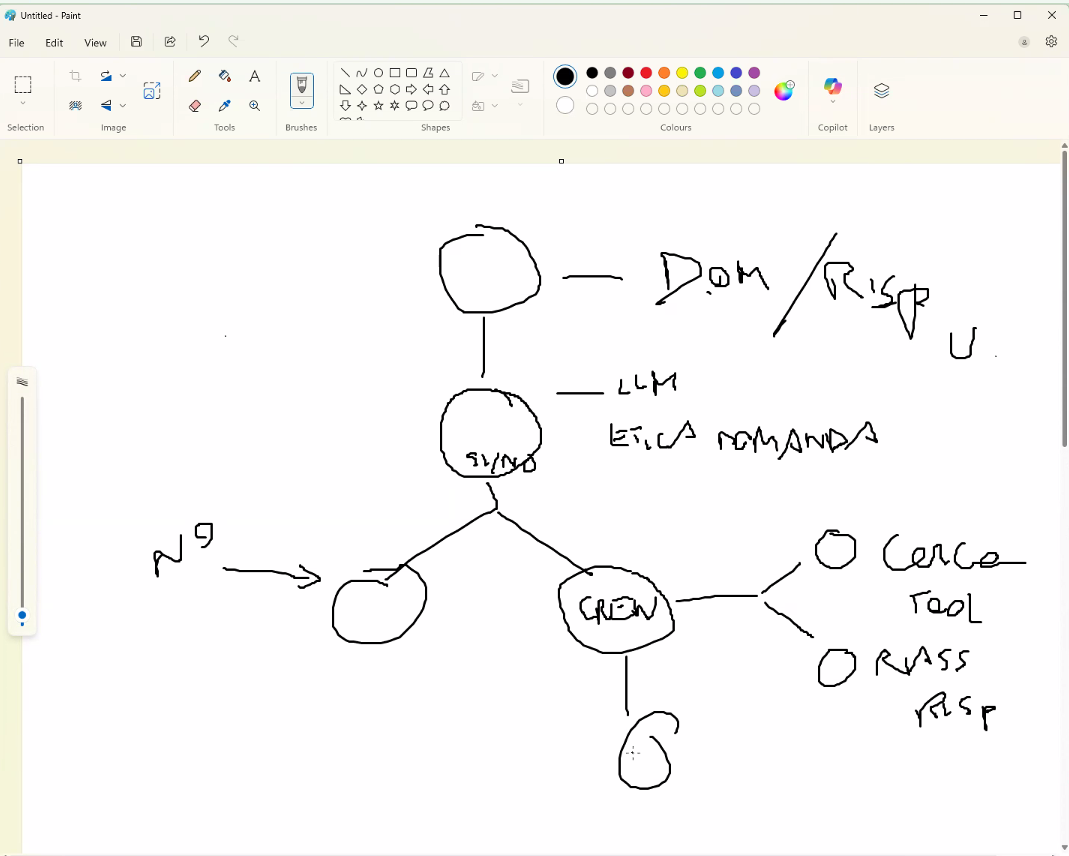 Untitled - Paint
File Edit View
Selection
Image
Tools
Brushes
Shapes
Colours
Copilot
Layers
DOM / RISP
U
LLM
ETICA DOMANDA
SI/NO
CREW
CERCA
TOOL
RIASS
RISP